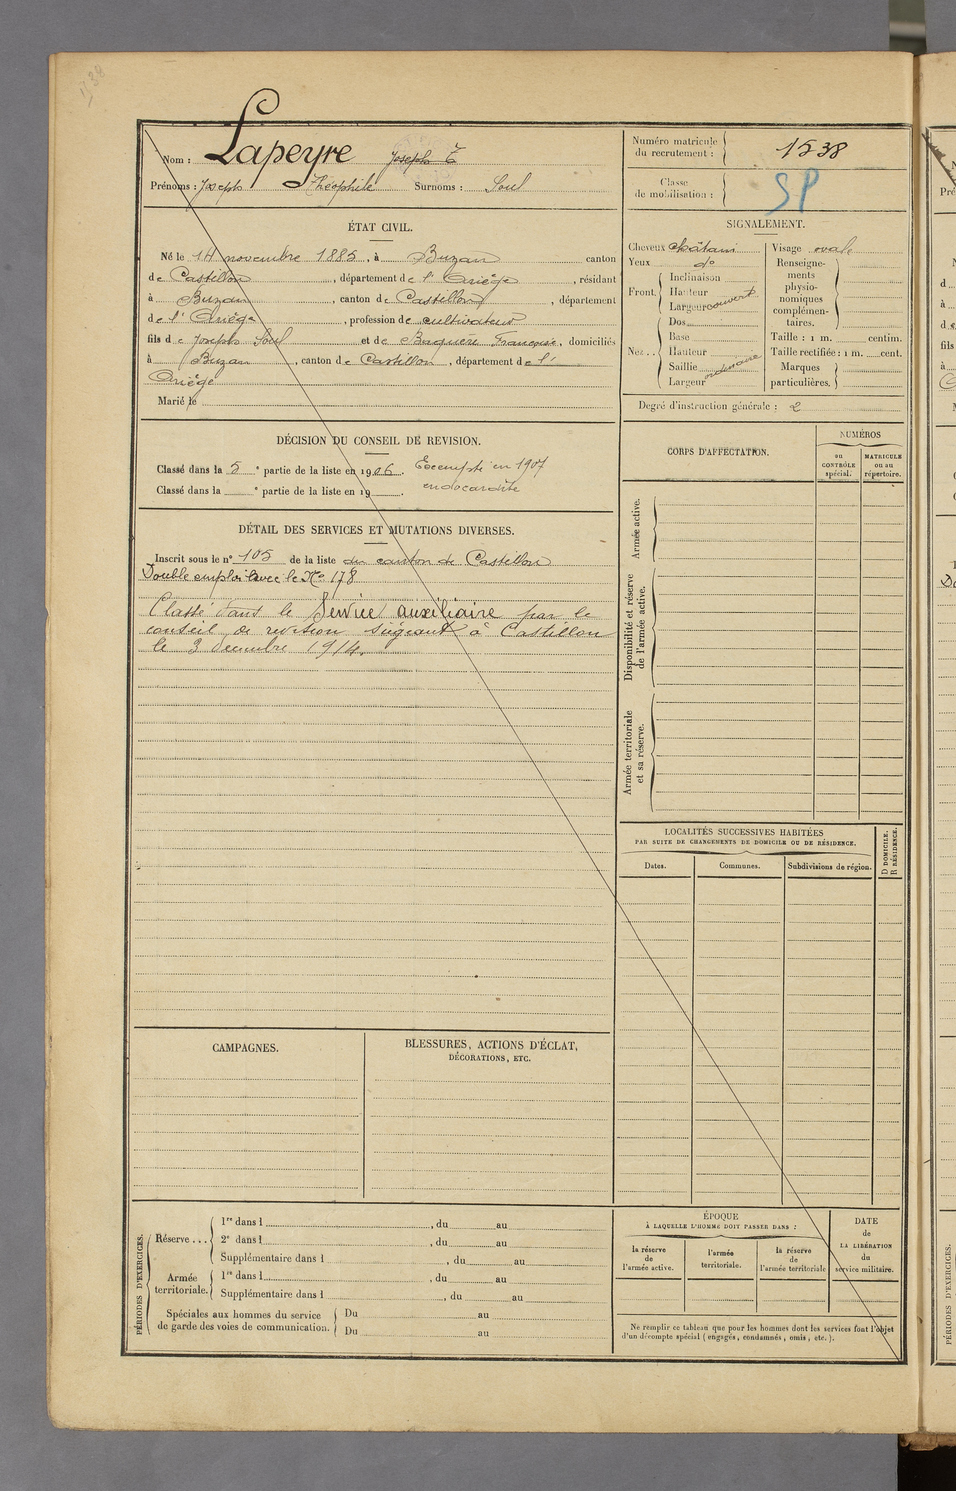 1538
Nom : Lapeyre Joseph T
Prénoms : Joseph Théophile Surnoms : Soul
Numéro matricule du recrutement : 1538
Classe de mobilisation : SP
ÉTAT CIVIL.
Né le 14 novembre 1885, à Buzan canton
de Castillon, département de l'Ariège, résidant
à Buzan, canton de Castillon, département
de l'Ariège, profession de cultivateur
fils de Joseph Soul et de Baquère Françoise, domiciliés
à Buzan, canton de Castillon, département de l'
Ariège
Marié le
SIGNALEMENT.
Cheveux châtain
Yeux do
Front. Inclinaison
Hauteur
Largeur couvert
Nez.. Dos
Base
Hauteur
Saillie
Largeur ordinaire
Visage ovale
Renseigne-
ments
physio-
nomiques
complémen-
taires.
Taille : 1 m. centim.
Taille rectifiée : 1 m. cent.
Marques
particulières.
Degré d'instruction générale : 2
DÉCISION DU CONSEIL DE REVISION.
Classé dans la 5e partie de la liste en 1906. Exempté en 1907
Classé dans la e partie de la liste en 19 . endocardite
DÉTAIL DES SERVICES ET MUTATIONS DIVERSES.
Inscrit sous le n° 105 de la liste du canton de Castillon
Double emploi avec le No 178
Classé dans le Service auxiliaire par le
conseil de révision siégeant à Castillon
le 3 décembre 1914.
CORPS D'AFFECTATION.
NUMÉROS
au
CONTRÔLE
spécial.
MATRICULE
ou au
répertoire.
Armée active.
Disponibilité et réserve
de l'armée active.
Armée territoriale
et sa réserve.
LOCALITÉS SUCCESSIVES HABITÉES
PAR SUITE DE CHANGEMENTS DE DOMICILE OU DE RÉSIDENCE.
Dates. Communes. Subdivisions de région.
D DOMICILE.
R RÉSIDENCE.
CAMPAGNES.
BLESSURES, ACTIONS D'ÉCLAT,
DÉCORATIONS, ETC.
PÉRIODES D'EXERCICES.
Réserve... 1re dans l , du au
2e dans l , du au
Supplémentaire dans l , du au
Armée
territoriale. 1re dans l , du au
Supplémentaire dans l , du au
Spéciales aux hommes du service
de garde des voies de communication. Du au
Du au
ÉPOQUE
À LAQUELLE L'HOMME DOIT PASSER DANS :
la réserve
de
l'armée active.
l'armée
territoriale.
la réserve
de
l'armée territoriale
DATE
de
LA LIBÉRATION
du
service militaire.
Ne remplir ce tableau que pour les hommes dont les services font l'objet
d'un décompte spécial (engagés, condamnés, omis, etc.).
PÉRIODES D'EXERCICES.